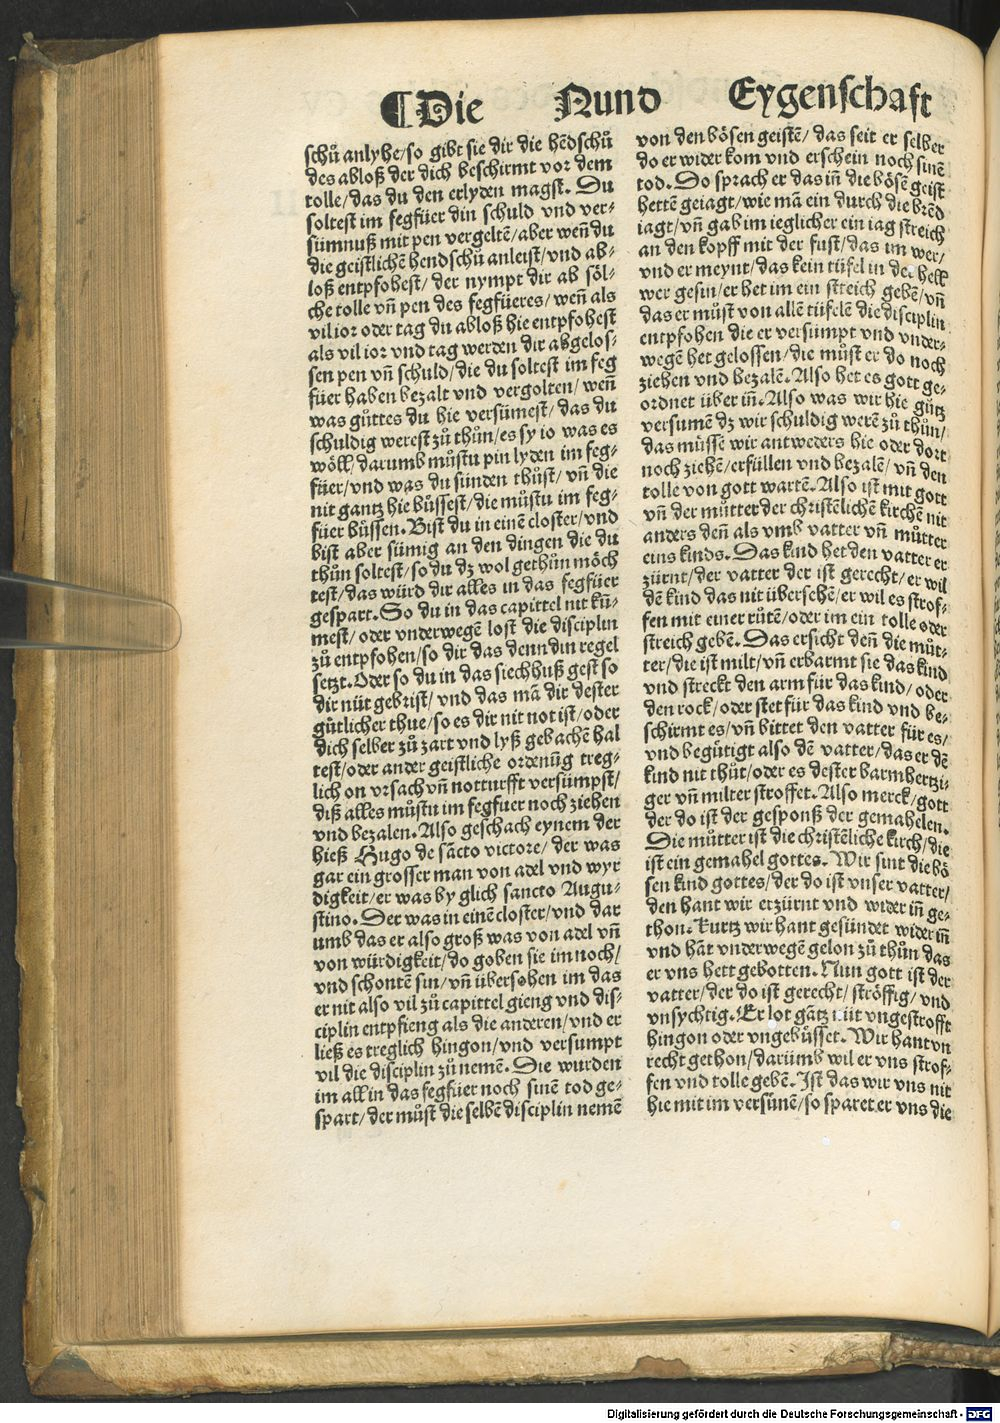 ¶Die Nund Eygenschaft
schů anlyhe/so gibt sie dir die hēdschů
des abloß der dich beschirmt vor dem
tolle/das du den erlyden magst. Du
soltest im fegfüer din schuld vnd ver⸗
sümnuß mit pen vergeltē/aber weñ du
die geistlichē hendschů anleist/vnd ab⸗
loß entpfohest/ der nympt dir ab söl⸗
che tolle vñ pen des fegfüeres/weñ als
vil ior oder tag du abloß hie entpfohest
als vil ior vnd tag werden dir abgelos⸗
sen pen vñ schuld/die du soltest im feg
füer haben bezalt vnd vergolten/ weñ
was gůttes du hie versümest/das du
schuldig werest zů thůn/es sy io was es
wöll/darumb můstu pin lyden im feg⸗
füer/vnd was du sünden thůst/vñ die
nit gantz hie büssest/die můstu im feg⸗
füer büssen. Bist du in einē closter/vnd
bist aber sümig an den dingen die du
thůn soltest/so du dz wol gethůn möch
test/das würd dir alles in das fegfüer
gespart. So du in das capittel nit kü̃⸗
mest/ oder vnderwegē lost die disciplin
zů entpfohen/so dir das denn din regel
setzt. Oder so du in das siechhuß gest so
dir nüt gebrist/vnd das mā dir dester
gütlicher thue/so es dir nit not ist/oder
dich selber zů zart vnd lyß gebachē hal
test/oder ander geistliche ordenūg treg⸗
lich on vrsach vñ notturfft versümpst/
diß alles můstu im fegfuer noch ziehen
vnd bezalen. Also geschach eynem der
hieß Hugo de sācto victore/ der was
gar ein grosser man von adel vnd wyr
digkeit/er was by glich sancto Augu⸗
stino. Der was in einē closter/vnd dar
umb das er also groß was von adel vñ
von würdigkeit/do goben sie im noch/
vnd schontē sin/vñ übersohen im das
er nit also vil zů capittel gieng vnd dis⸗
ciplin entpfieng als die anderen/vnd er
ließ es treglich hingon/vnd versumpt
vil die disciplin zů nemē. Die wurden
im all in das fegfüer noch sinē tod ge⸗
spart/der můst die selbē disciplin nemē
von den bösen geistē/das seit er selber
do er wider kom vnd erschein noch sinē
tod. Do sprach er das iñ die bösē geist
hettē geiagt/wie mā ein durch die brēd
iagt/vñ gab im ieglicher ein iag streich
an den kopff mit der fust/das im wer/
vnd er meynt/das kein tüfel in der hell
wer gesin/er het im ein streich gebē/vñ
das er můst von allē tüfelē die disciplin
entpfohen die er versümpt vnd vnder⸗
wegē het gelossen/die můst er do noch
ziehen vnd bezalē. Also het es gott ge⸗
ordnet über iñ. Also was wir hie gůtz
versumē dz wir schuldig werē zů thůn/
das müssē wir antweders hie oder dort
noch ziehē/erfüllen vnd bezalē/ vñ den
tolle von gott wartē. Also ist mit gott
vñ der můtter der christēlichē kirchē nit
anders deñ als vmb vatter vñ můtter
eins kinds. Das kind het den vatter er
zürnt/der vatter der ist gerecht/er wil
dē kind das nit übersehē/er wil es strof⸗
fen mit einer růtē/oder im ein tolle oder
streich gebē. Das ersicht deñ die můt⸗
ter/die ist milt/vñ erbarmt sie das kind
vnd streckt den arm für das kind/ oder
den rock/oder stet für das kind vnd be⸗
schirmt es/vñ bittet den vatter für es/
vnd begütigt also dē vatter/das er dē
kind nit thůt/oder es dester barmhertzi⸗
ger vñ milter stroffet. Also merck/gott
der do ist der gesponß der gemahelen.
Die můtter ist die christēliche kirch/die
ist ein gemahel gottes. Wir sint die bö
sen kind gottes/der do ist vnser vatter/
den hant wir erzürnt vnd wider iñ ge⸗
thon. Kurtz wir hant gesündet wider iñ
vnd hāt vnderwegē gelon zů thůn das
er vns hett gebotten. Nun gott ist der
vatter/der do ist gerecht/ ströffig/ vnd
vnsychtig. Er lot gātz nüt vngestrofft
hingon oder vngebůsset. Wir hant vn
recht gethon/darümb wil er vns strof⸗
fen vnd tolle gebē. Ist das wir vns nit
hie mit im versünē/so sparet er vns die
Digitalisierung gefördert durch die Deutsche Forschungsgemeinschaft - DFG